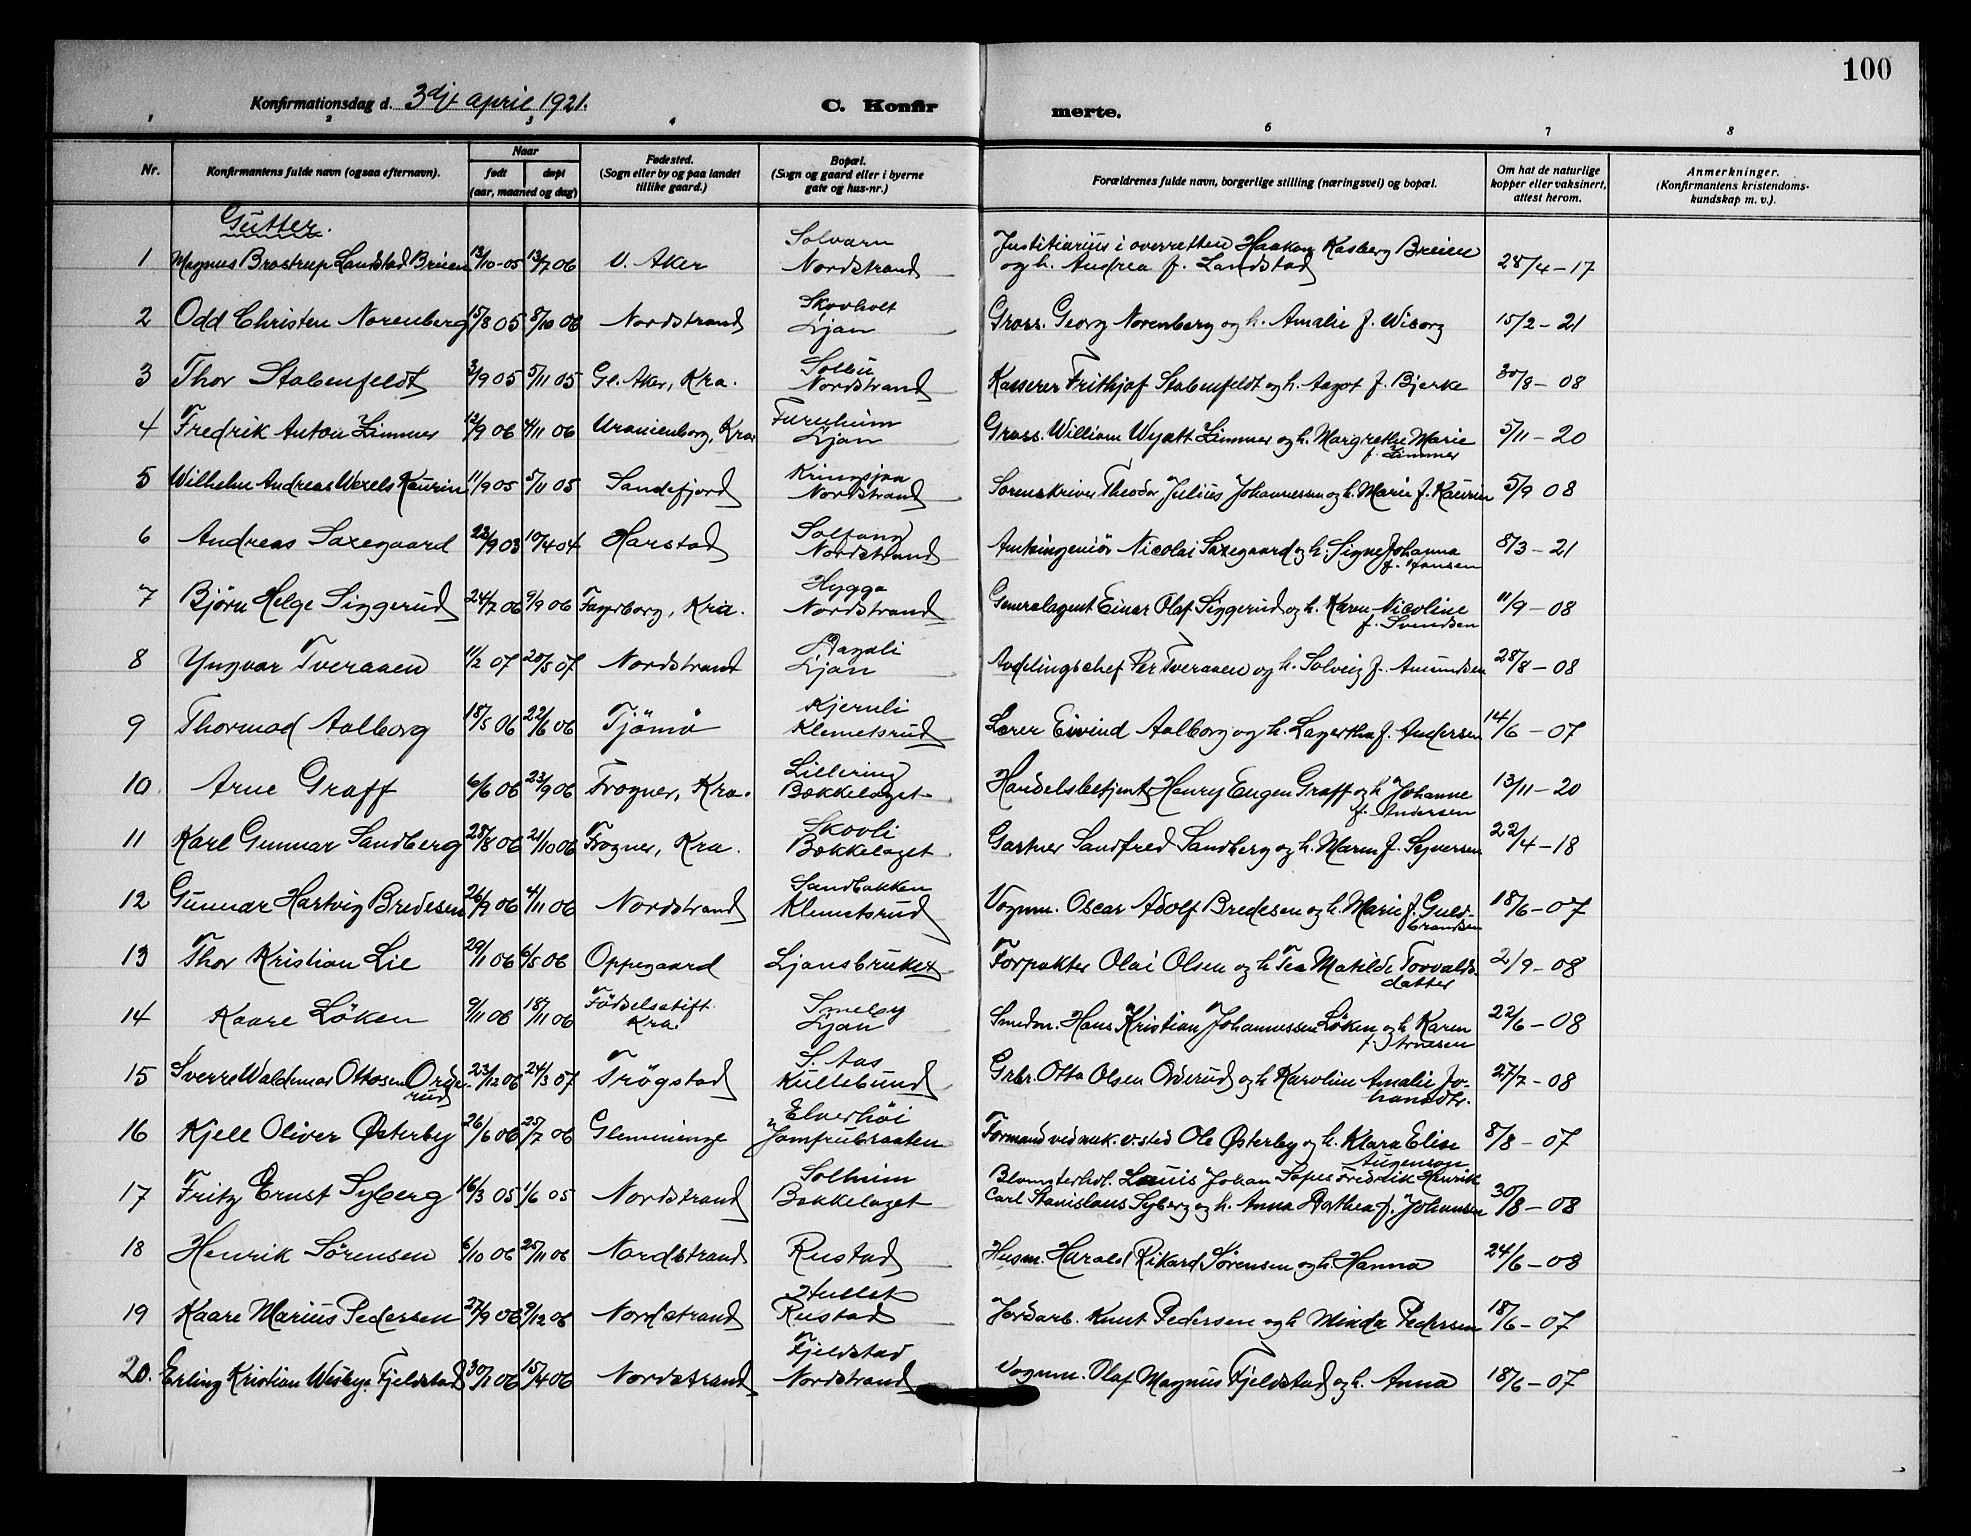 100
Konfirmationsdag d. 3dje april 1921.
C. Konfir merte.
1 2 3 4 6 7 8
Nr.
Konfirmantens fulde navn (ogsaa efternavn).
Naar
født døpt
(aar, maaned og dag)
Fødested.
(Sogn eller by og paa landet
tillike gaard.)
Bopæl.
(Sogn og gaard eller i byerne
gate og hus-nr.)
Forældrenes fulde navn, borgerlige stilling (næringsvei) og bopæl.
Om hat de naturlige
kopper eller vaksinert,
attest herom.
Anmerkninger.
(Konfirmantens kristendoms-
kundskap m. v.).
Gutter.
Solvarn Justitiarius i overretten Haakon Kasberg Breien
1 Magnus Brostrup Landstad Breien 13/10-05 13/7 06 V. Aker Nordstrand og h. Andrea f. Landstad 28/4-17
Skovholt
2 Odd Christen Norenberg 15/8 05 8/10 06 Nordstrand Ljan Gross. Georg Norenberg og h. Amalie f. Wiborg 15/2-21
3 Thor Stabenfeldt 3/9 05 5/11 05 Gl. Aker, Kra. Nordstrand Kasserer Frithjof Stabenfeldt og h. Aagot f. Bjerke 30/8-08
Furuheim
4 Fredrik Anton Zimmer 12/9 06 4/11 06 Uranienborg, Kra. Ljan Gross. William Wyatt Zimmer og h. Margrethe Marie 5/11-20
f. Zimmer
Kringsjaa
5 Wilhelm Andreas Wexels Kaurin 11/9 05 5/11 05 Sandefjord Nordstrand Sorenskriver Theodor Julius Johannessen og h. Marie f. Kaurin 5/9 08
Solfang
6 Andreas Saxegaard 23/9 03 10/4 04 Harstad Nordstrand Amtsingeniör Nicolai Saxegaard og h. Signe Johanna 8/3-21
f. Hansen
Hygga
7 Björn Helge Siggerud 24/7 06 9/9 06 Fagerborg, Kra. Nordstrand Generalagent Einar Olaf Siggerud og h. Karen Nicoline 11/9-08
f. Svendsen
8 Yngvar Tveraaen 11/2 07 20/5 07 Nordstrand Ljan Avdelingschef Per Tveraaen og h. Solveig f. Amundsen 28/8-08
Kjernli
9 Thormod Aalborg 18/5 06 22/6 06 Tjömö Klemetsrud Lærer Eivind Aalborg og h. Lagertha f. Andersen 14/6-07
Lillering
10 Arne Graff 6/6 06 23/9 06 Frogner, Kra. Bækkelaget Handelsbetjent Henry Eugen Graff og h. Johanne 13/11-20
f. Andersen
Skovli
11 Karl Gunnar Sandberg 28/8 06 21/10 06 Frogner, Kra. Bækkelaget Gartner Sandfred Sandberg og h. Maren f. Syversen 22/4-18
Sandbakken
12 Gunnar Hartvig Bredesen 26/9 06 4/11 06 Nordstrand Klemetsrud Vognm. Oscar Adolf Bredesen og h. Marie f. Guld- 18/6-07
brandsen
13 Thor Kristian Lie 29/1 06 6/5 06 Oppegaard Ljansbruket Forpakter Olai Olsen og h. Tea Matilde Torvalds- 2/9-08
datter
Födselsstift. Smeby
14 Kaare Löken 9/11 06 18/11 06 Kra. Ljan Smedm. Hans Kristian Johannessen Löken og h. Karen 22/6-08
f. Arnesen
S. Aas
15 Sverre Waldemar Ottosen Orde- 23/12 06 24/3 07 Trögstad Kullebund Grbr. Otto Olsen Orderud og h. Karoline Amalie Jo- 27/7-08
rud hansdtr.
Elverhöi
16 Kjell Oliver Østerby 26/6 06 25/7 06 Glemminge Jomfrubraaten Formand ved mek. v.sted Ole Østerby og h. Klara Elise 8/8-07
Augenson
Solheim Blomsterhdl. Louis Johan Fredrik Henrik
17 Fritz Ernst Syberg 16/3 05 1/6 05 Nordstrand Bækkelaget Carl Stanislaus Syberg og h. Anna Dorthea f. Johansen 30/8-08
18 Henrik Sörensen 6/10 06 25/11 06 Nordstrand Rustad Husm. Harald Rikard Sörensen og h. Hanna 24/6-08
Hullet
19 Kaare Marius Pedersen 27/9 06 9/12 06 Nordstrand Rustad Jordarb. Knut Pedersen og h. Minda Pedersen 18/6-07
Fjeldstad
20. Erling Kristian Wisbye Fjeldstad 30/1 06 15/4 06 Nordstrand Nordstrand Vognm. Olaf Magnus Fjeldstad og h. Anna 18/6-07